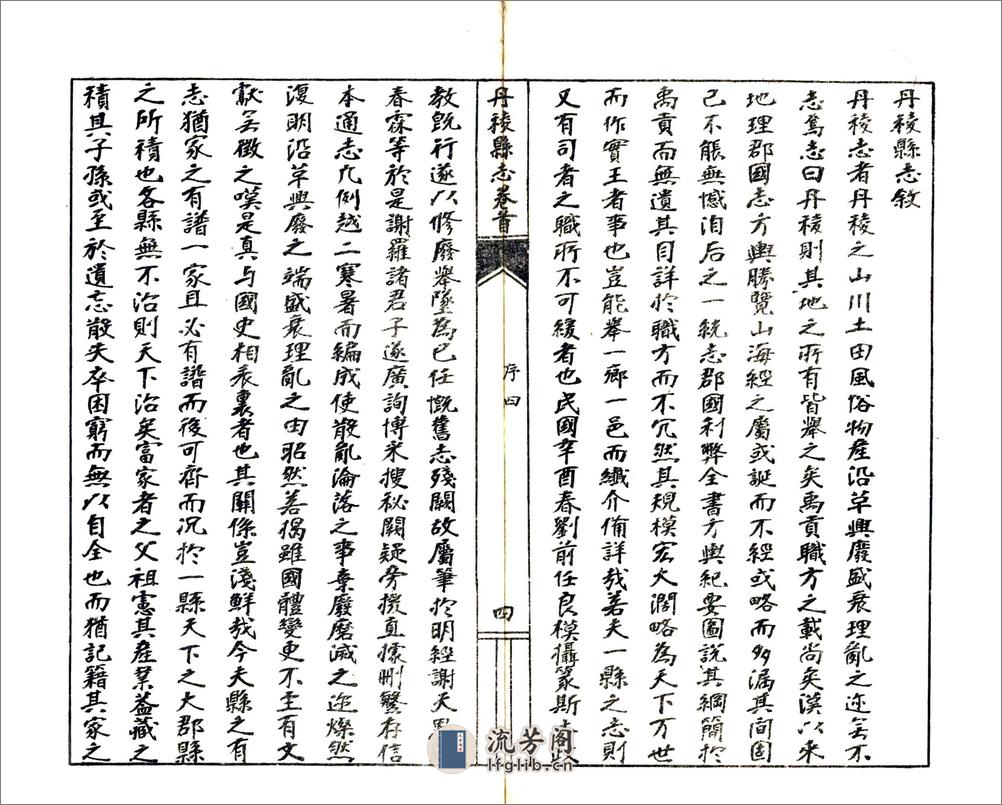 丹稜縣志敘
丹稜志者丹稜之山川土田風俗物產沿革興廢盛衰理亂之迹罔不
志焉志曰丹稜則其地之所有皆舉之矣禹貢職方之載尚矣漢以来
地理郡國志方輿勝覽山海經之屬或誕而不經或略而多漏其間固
已不能無憾洎后之一統志郡國利弊全書方輿紀要圖說其綱簡於
禹貢而無遺其目詳於職方而不冗然其規模宏大濶略為天下万世
而作實王者事也豈能舉一鄉一邑而纖介俻詳哉若夫一縣之志則
又有司者之職所不可緩者也民國辛酉春劉前任良模攝篆斯
丹稜縣志卷首
序四
四
教既行遂以修廢舉墜為己任慨舊志殘闕故屬筆於明經謝天
春霖等於是謝羅諸君子遂廣詢博采搜祕闕疑旁援直據刪繁存信
本通志凡例越二寒暑而編成使散亂淪落之事棄廢磨滅之迹燦然
復明沿革興廢之端盛衰理亂之由昭然善揭雖國體變更不至有文
獻無徵之嘆是真与國史相表裏者也其關係豈淺鮮哉今夫縣之有
志猶家之有譜一家且必有譜而後可齊而况於一縣天下之大郡縣
之所積也各縣無不治則天下治矣富家者之父祖憲其產業蓋藏之
積其子孫或至於遺忘散失卒困窮而無以自全也而猶記籍其家之
流芳阁
lfglib.com